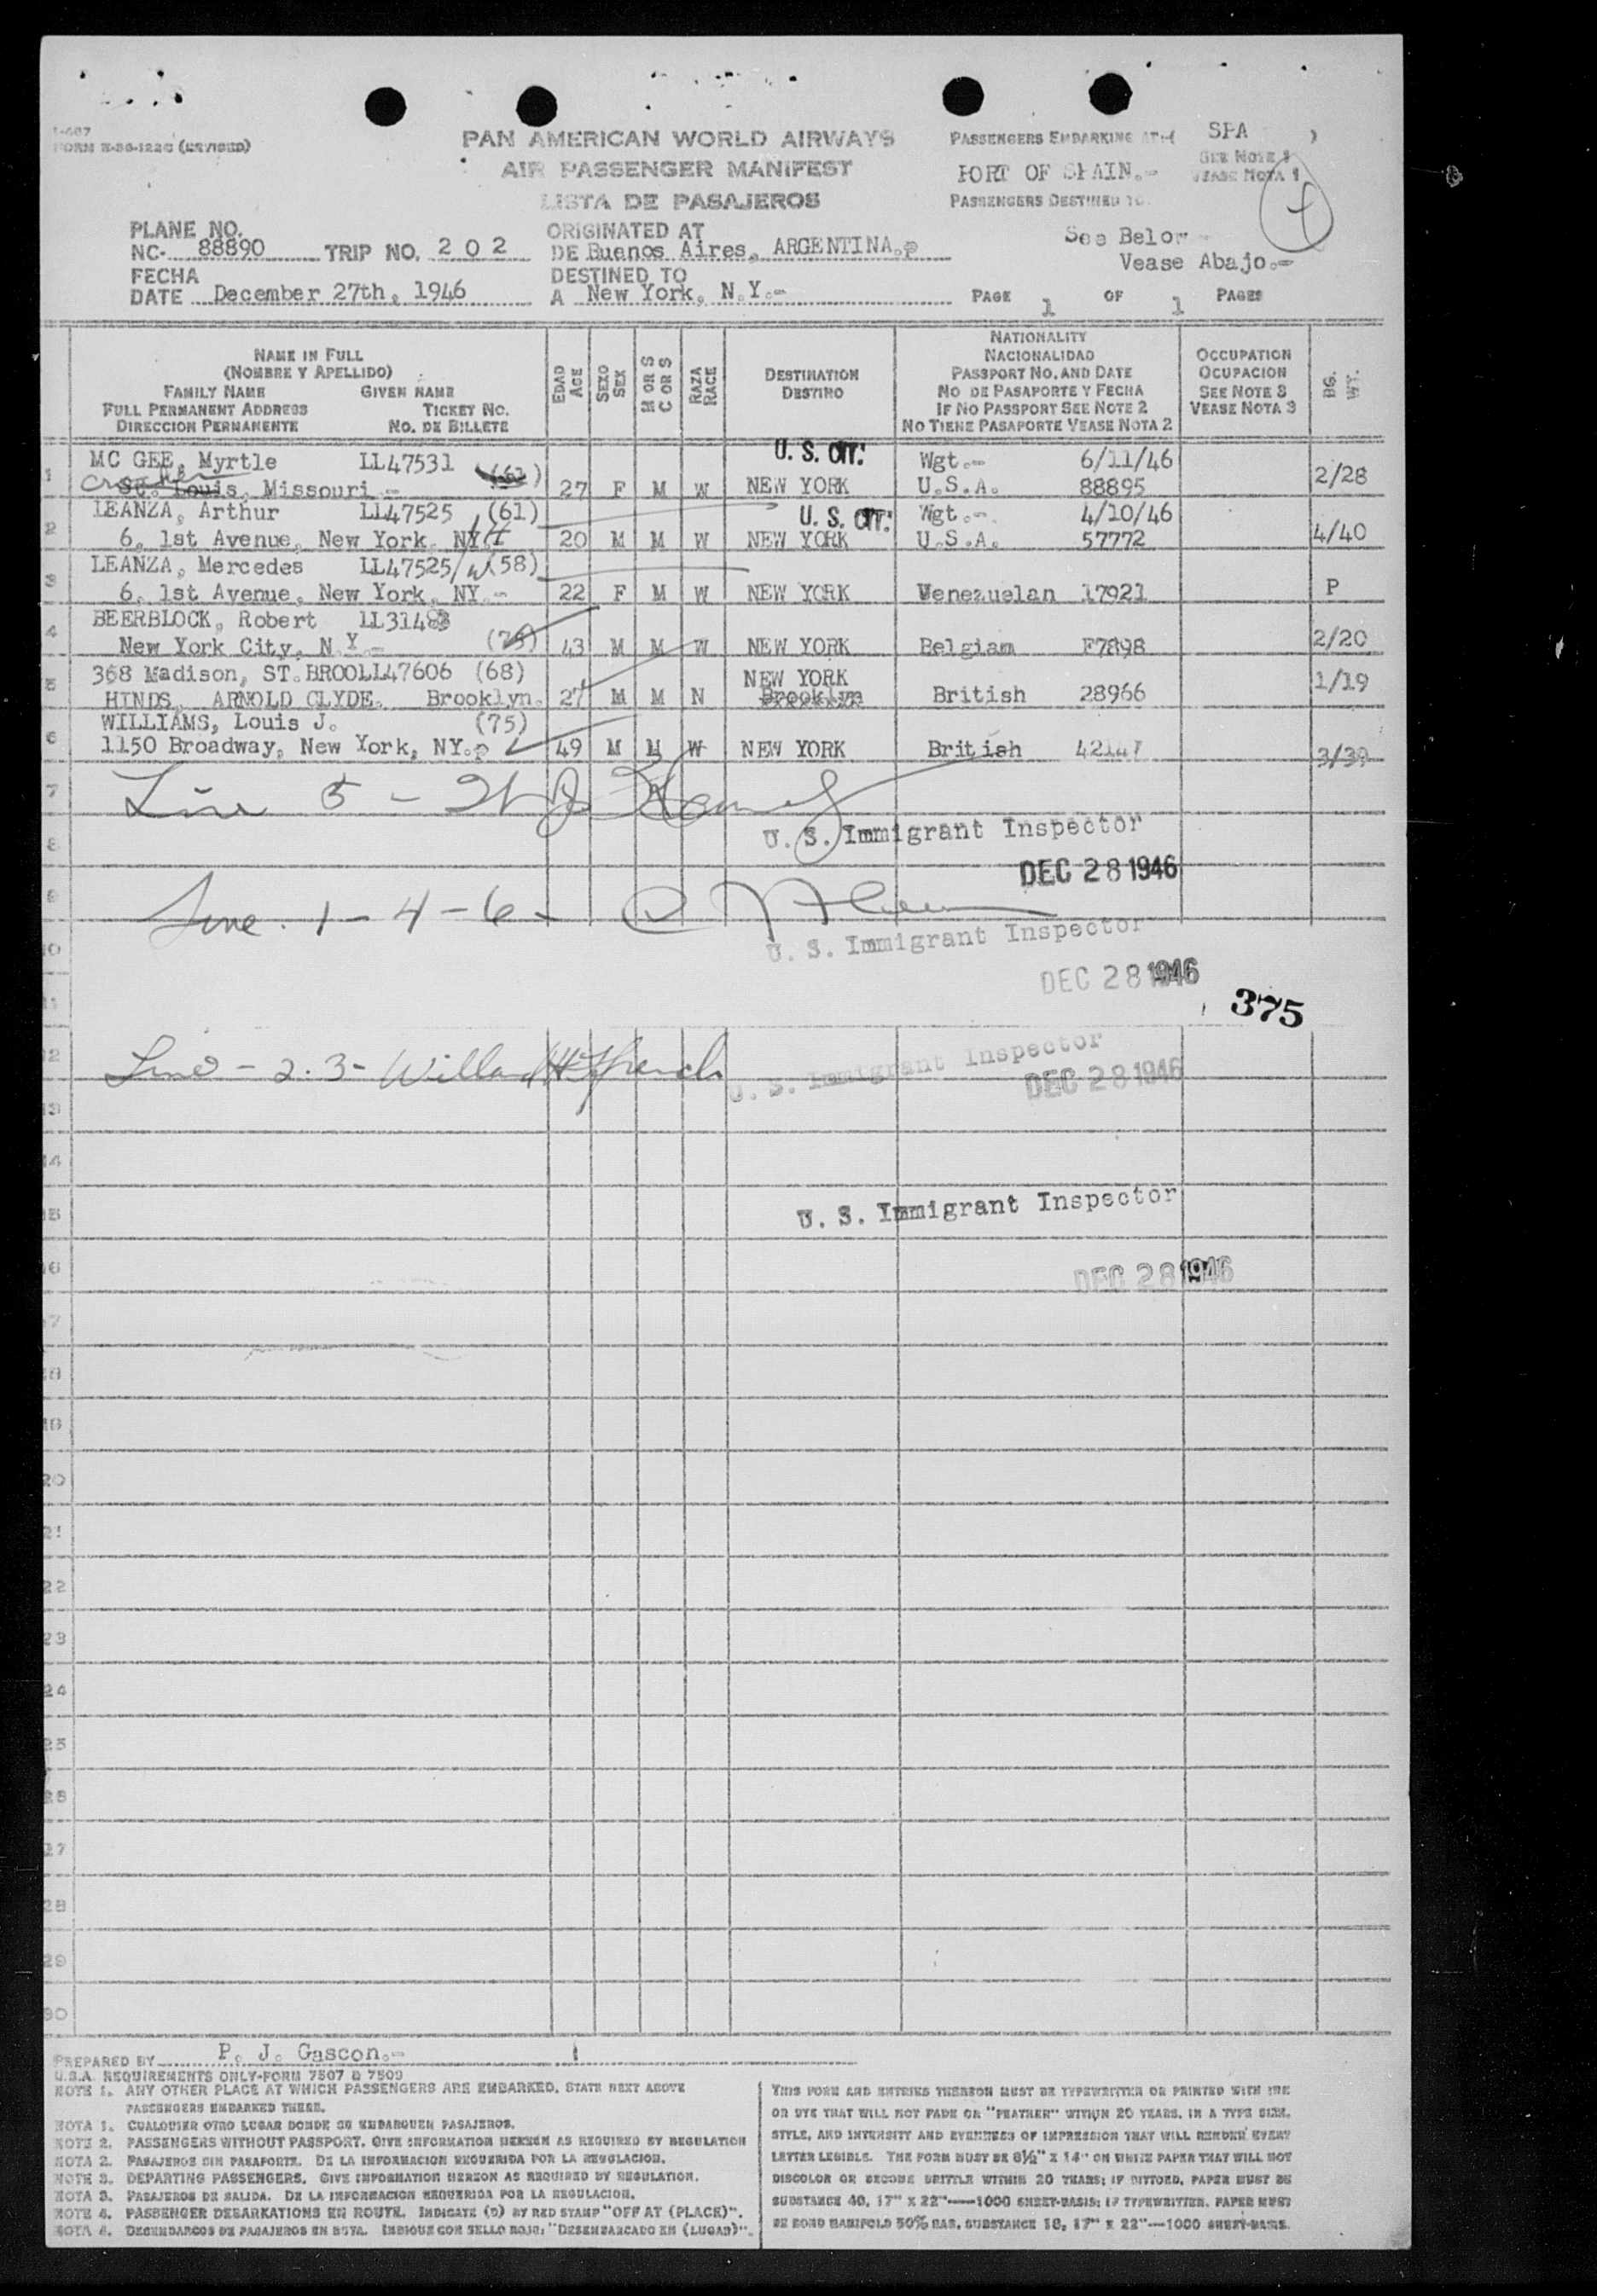 I-467
FORM (REVISED)
PAN AMERICAN WORLD AIRWAYS
AIR PASSENGER MANIFEST
LISTA DE PASAJEROS
PASSENGERS EMBARKING AT:-( SPA )
SEE NOTE 1
VEASE NOTA 1
PORT OF SPAIN.-
PASSENGERS DESTINED TO.
See Below -
Vease Abajo.-
PLANE NO.
NC- 88890 TRIP NO. 2 0 2
ORIGINATED AT
DE Buenos Aires, ARGENTINA.
FECHA
DATE December 27th, 1946
DESTINED TO
A New York, N.Y.-
PAGE 1 OF 1 PAGES
NAME IN FULL
(NOMBRE Y APELLIDO)
FAMILY NAME GIVEN NAME
FULL PERMANENT ADDRESS TICKET NO.
DIRECCION PERMANENTE NO. DE BILLETE
EDAD
AGE
SEXO
SEX
M OR S
C OR S
RAZA
RACE
DESTINATION
DESTINO
NATIONALITY
NACIONALIDAD
PASSPORT NO. AND DATE
NO DE PASAPORTE Y FECHA
IF NO PASSPORT SEE NOTE 2
NO TIENE PASAPORTE VEASE NOTA 2
OCCUPATION
OCUPACION
SEE NOTE 3
VEASE NOTA 3
BG.
WT.
1 MC GEE, Myrtle LL47531 (61) U. S. CIT. Wgt.- 6/11/46
St. Louis, Missouri.- 27 F M W NEW YORK U.S.A. 88895 2/28
2 LEANZA, Arthur LL47525 (61) U. S. CIT. Wgt.- 4/10/46
6, 1st Avenue, New York, NY 20 M M W NEW YORK U.S.A. 57772 4/40
3 LEANZA, Mercedes LL47525/ (58)
6, 1st Avenue, New York, NY.- 22 F M W NEW YORK Venezuelan 17921 P
4 BEERBLOCK, Robert LL31483
New York City, N Y.- (75) 43 M M W NEW YORK Belgiam F7898 2/20
5 368 Madison, ST.BROOLL47606 (68) NEW YORK
HINDS, ARNOLD CLYDE. Brooklyn. 27 M M N Brooklyn British 28966 1/19
6 WILLIAMS, Louis J. (75)
1150 Broadway, New York, NY. 49 M M W NEW YORK British 42147 3/39
7 Line 5 -
8 U. S. Immigrant Inspector
DEC 28 1946
9 Line. 1-4-6-
10 U. S. Immigrant Inspector
DEC 28 1946
11 375
12 Line - 2.3- Willard H French U. S. Immigrant Inspector
DEC 28 1946
13
14
15 U. S. Immigrant Inspector
16 DEC 28 1946
17
18
19
20
21
22
23
24
25
26
27
28
29
30
PREPARED BY P. J. Gascon.-
U.S.A. REQUIREMENTS ONLY-FORM 7507 & 7509
NOTE 1. ANY OTHER PLACE AT WHICH PASSENGERS ARE EMBARKED, STATE NEXT ABOVE
PASSENGERS EMBARKED THERE.
NOTA 1. CUALQUIER OTRO LUGAR DONDE SE EMBARQUEN PASAJEROS.
NOTE 2. PASSENGERS WITHOUT PASSPORT. GIVE INFORMATION HEREON AS REQUIRED BY REGULATION
NOTA 2. PASAJEROS SIN PASAPORTE. DE LA INFORMACION REQUERIDA POR LA REGULACION.
NOTE 3. DEPARTING PASSENGERS. GIVE INFORMATION HEREON AS REQUIRED BY REGULATION.
NOTA 3. PASAJEROS DE SALIDA. DE LA INFORMACION REQUERIDA POR LA REGULACION.
NOTE 4. PASSENGER DEBARKATIONS EN ROUTE. INDICATE (D) BY RED STAMP "OFF AT (PLACE)".
NOTA 4. DESEMBARCOS DE PASAJEROS EN RUTA. INDIQUE CON SELLO ROJO: "DESEMBARCADO EN (LUGAR)".
THIS FORM AND ENTRIES THEREON MUST BE TYPEWRITTEN OR PRINTED WITH INK
OR DYE THAT WILL NOT FADE OR "FEATHER" WITHIN 20 YEARS, IN A TYPE SIZE,
STYLE, AND INTENSITY AND EVENNESS OF IMPRESSION THAT WILL RENDER EVERY
LETTER LEGIBLE. THE FORM MUST BE 8½" X 14" ON WHITE PAPER THAT WILL NOT
DISCOLOR OR BECOME BRITTLE WITHIN 20 YEARS; IF DITTOED, PAPER MUST BE
SUBSTANCE 40, 17" X 22"—1000 SHEET-BASIS; IF TYPEWRITTEN, PAPER MUST
BE BOND MANIFOLD 50% RAG, SUBSTANCE 18, 17" X 22"—1000 SHEET-BASIS.